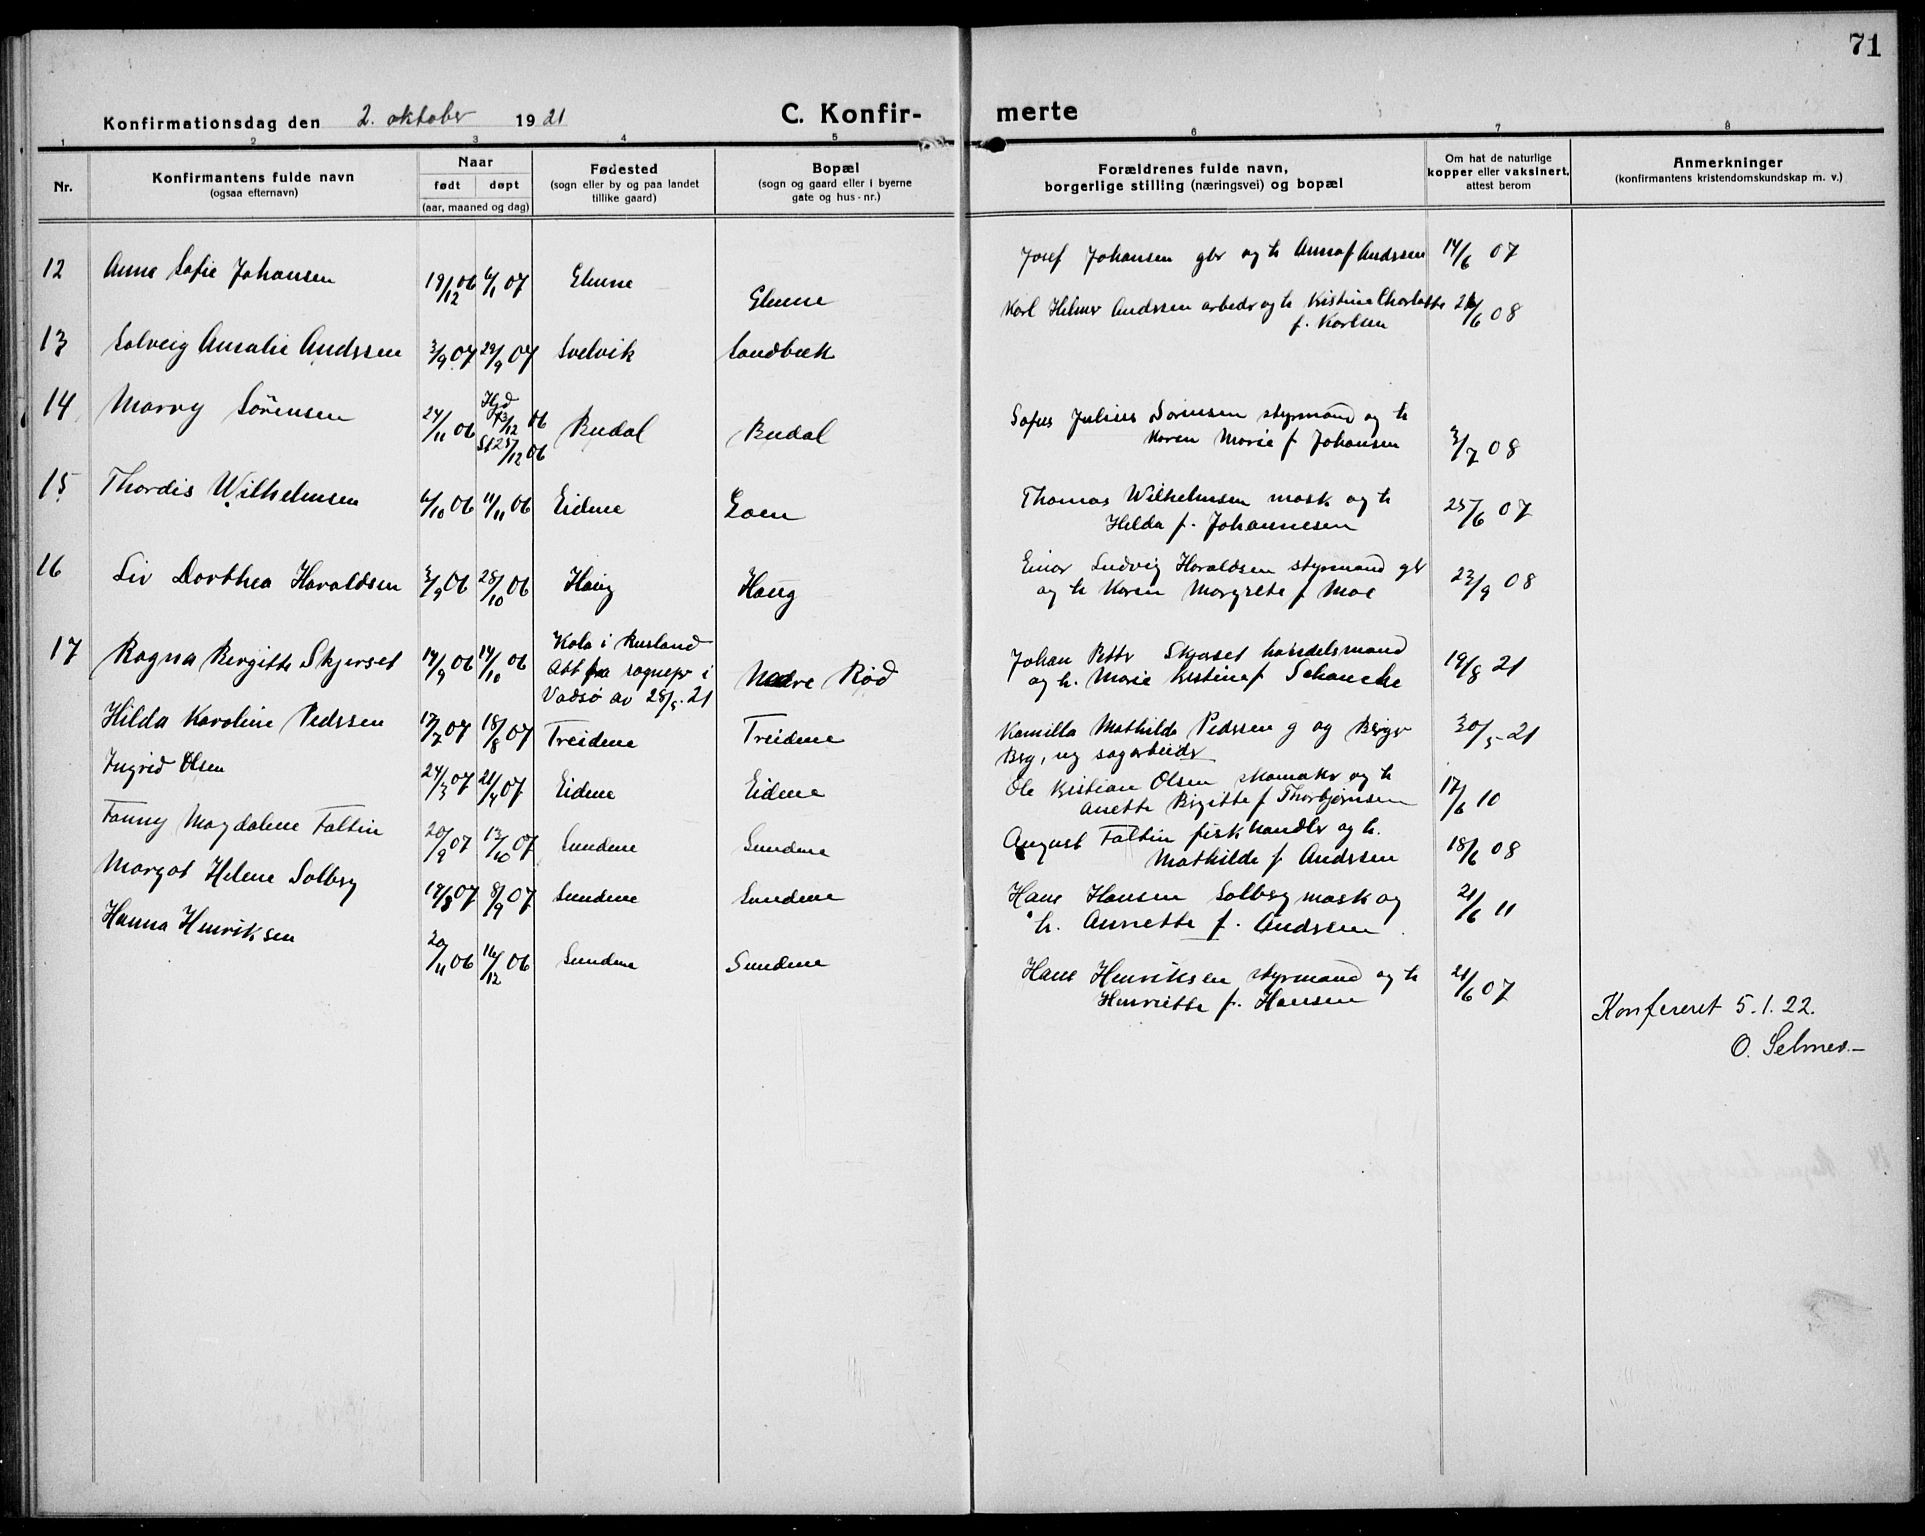 71
Konfirmationsdag den 2. oktober 1921
C. Konfir-merte
1 2 3 4 5 6 7 8
Nr.
Konfirmantens fulde navn
(ogsaa efternavn)
Naar
født døpt
(aar, maaned og dag)
Fødested
(sogn eller by og paa landet
tillike gaard)
Bopæl
(sogn og gaard eller i byerne
gate og hus-nr.)
Forældrenes fulde navn,
borgerlige stilling (næringsvei) og bopæl
Om hat de naturlige
kopper eller vaksinert,
attest berom
Anmerkninger
(konfirmantens kristendomskundskap m. v.)
12 Anna Sofie Johansen 19/12 06 6/1 07 Glenne Glenne
Josef Johansen gbr og h Anna f Andssen 14/6 07
13 Solveig Amalie Andssen 3/9 07 29/9 07 Svelvik Sandbæk
Karl Helmer Andssen arbedr og h Kristine Charlotte
f. Karlsen 26/6 08
14 Marry Sørensen 24/11 06 Hjd 13/12 06 St 25/12 06 Budal Budal
Sofus Julius Sørensen styrmand og h
Karen Marie f Johansen 3/7 08
15 Thordis Wilhelmsen 6/10 06 11/11 06 Eidene Goen
Thomas Wilhelmsen mask og h
Hilda f. Johannesen 25/6 07
16 Liv Dorthea Haraldsen 3/9 06 28/10 06 Haug Haug
Einar Ludvig Haraldsen styrmand gbr
og h Karen Margrete f Moe 23/9 08
17 Ragna Birgitte Skjerset 14/9 06 14/10 06 Kola i Rusland
Att fra sognepr i
Vadsø av 28/5.21 Nedre Rød
Johan Pettr Skjerset handelsmand
og h. Marie Kristine f Schancke 19/8 21
Hilda Karoline Pedssen 17/7 07 18/8 07 Treidene Treidene
Kamilla Mathilde Pedssen g og Birger
Berg, ug sagarbeidr 30/5 21
Ingrid Olsen 24/3 07 21/4 07 Eidene Eidene
Ole Kristian Olsen skomakr og h
Anette Birgitte f Thorbjørnsen 17/6 10
Fanny Magdalene Faltin 20/9 07 13/10 07 Sundene Sundene
August Faltin fiskhandlr og h.
Mathilde f Andssen 18/6 08
Margot Helene Solberg 19/8 07 8/9 07 Sundene Sundene
Hans Hansen Solberg mask og
h. Annette f. Andssen 21/6 11
Hanna Henriksen 20/11 06 16/12 06 Sundene Sundene
Hans Henriksen styrmand og h
Henriette f. Hansen 21/6 07
Konfereret 5.1.22.
O. Selmer.